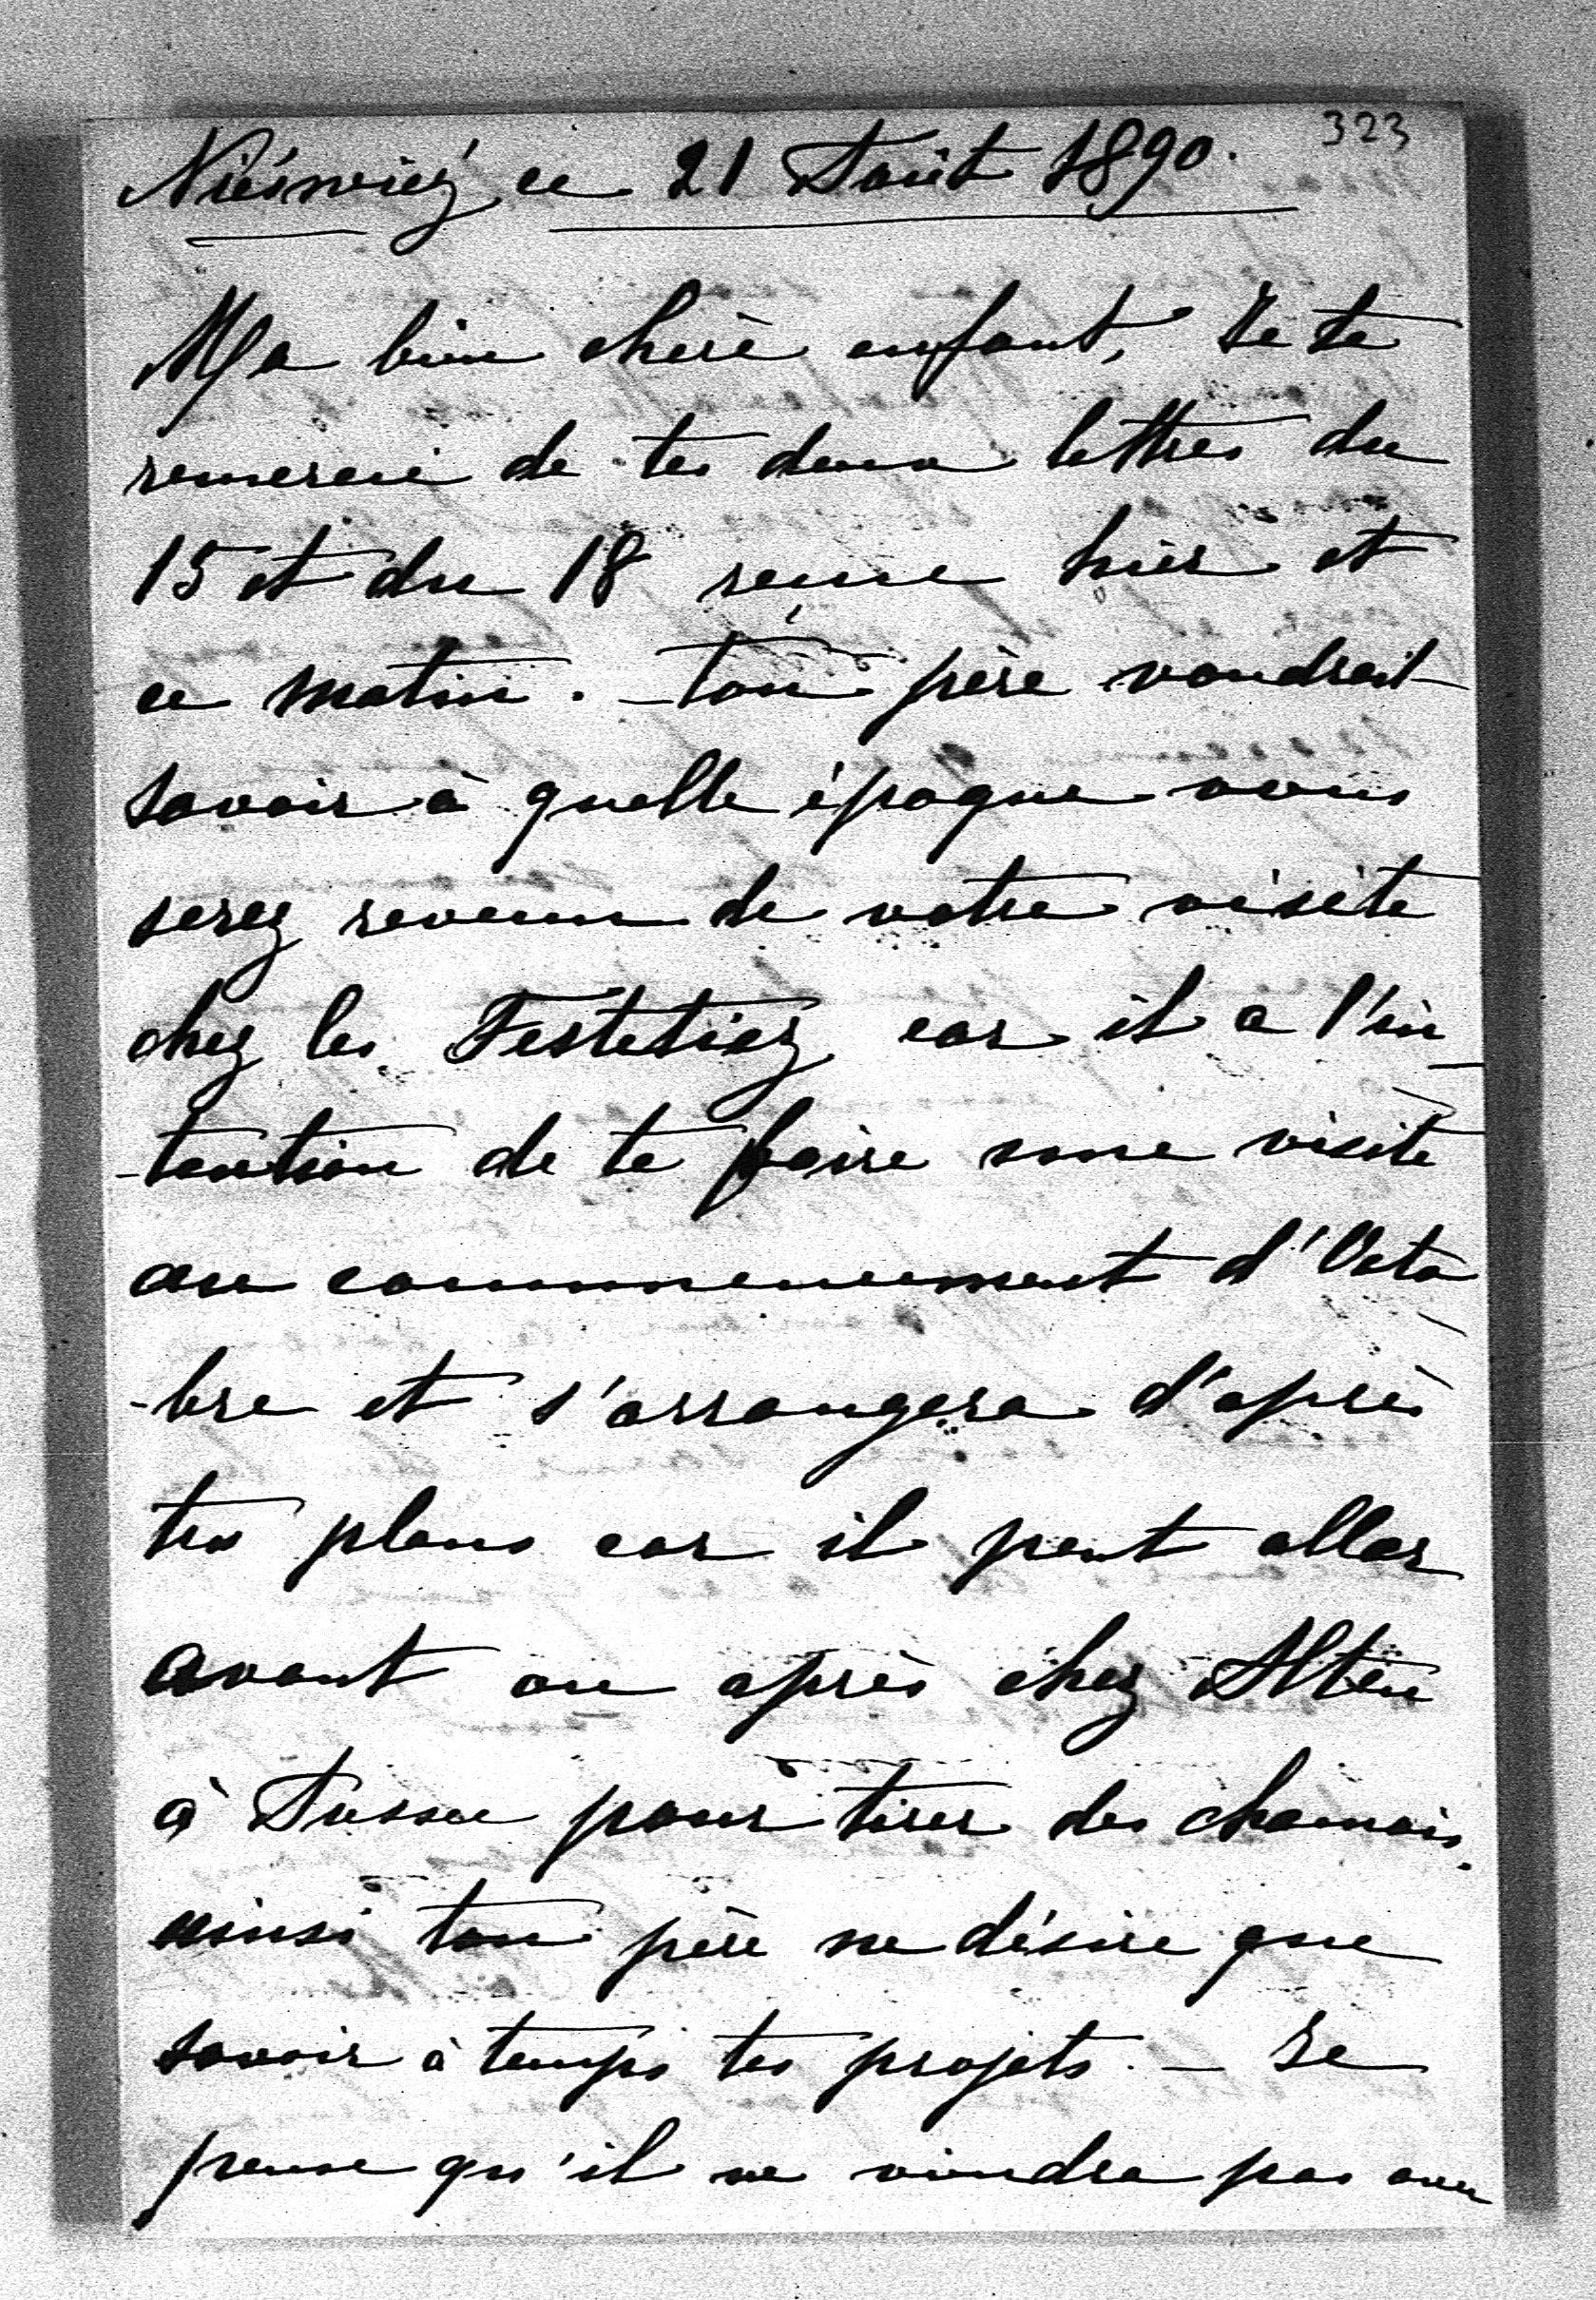 323
Nieśwież ce 21 Août 1890.
Ma bien chère enfant, Je te
remercie de tes deux lettres du
15 et du 18 reçues hier et
ce matin. — ton père voudrait
savoir à quelle époque vous
serez revenu de votre visite
chez les Festeticz car il a l'in
-tention de te faire une visite
au commencement d'Octo
-bre et s'arrangera d'après
tes plans car il peut aller
avant ou après chez Alten
à Aussee pour tirer des chamois.
ainsi ton père ne désire que
savoir à temps tes projets. — Je
pense qu'il ne viendra pas avec